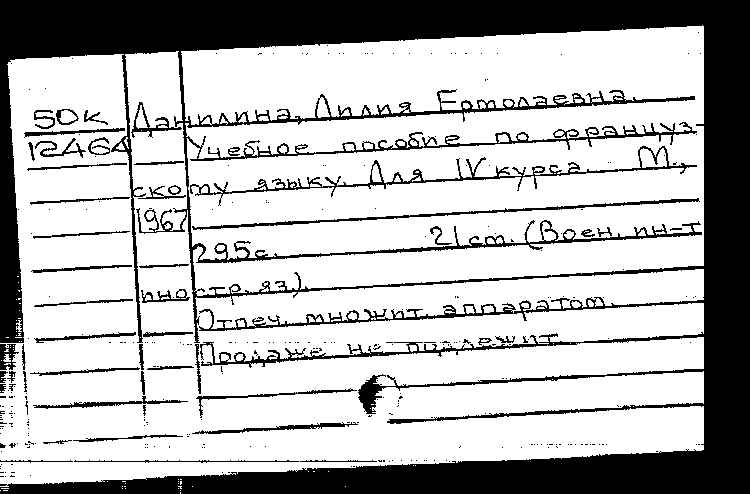 50К Данилина, Лилия Ермолаевна.
12464 Учебное пособие по француз-
скому языку. Для IV курса. М.,
1967
295с. 21 см. (Воен. ин-т
иностр. яз).
Отпеч. множит. аппаратом.
Продаже не подлежит